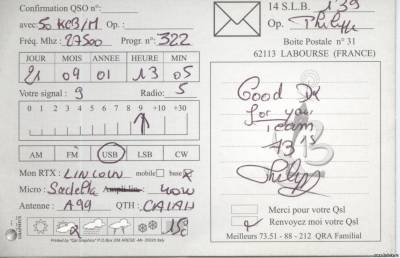 Confirmation QSO n°:
avec: 50 KCB/M Op.:
Fréq. Mhz : 27500 Progr. n°: 322
JOUR MOIS ANNEE HEURE MIN
21 09 01 13 05
Votre signal : 9 Radio: 5
0 1 2 3 4 5 6 7 8 9 +10 +30
AM FM USB LSB CW
Mon RTX : LINCOLN mobile base
Micro : Sadelta Amplilin. 40W
Antenne : A99 QTH : CALAIS
Printed by "Qsl Graphics" P.O.Box
14 S.L.B. 139
Op. Philipp
Boite Postale n° 31
62113 LABOURSE (FRANCE)
Good DX
for your
Team
73's
Philipp
Merci pour votre Qsl
Renvoyez moi votre Qsl
Meilleurs 73.51 - 88 - 212 QRA Familial